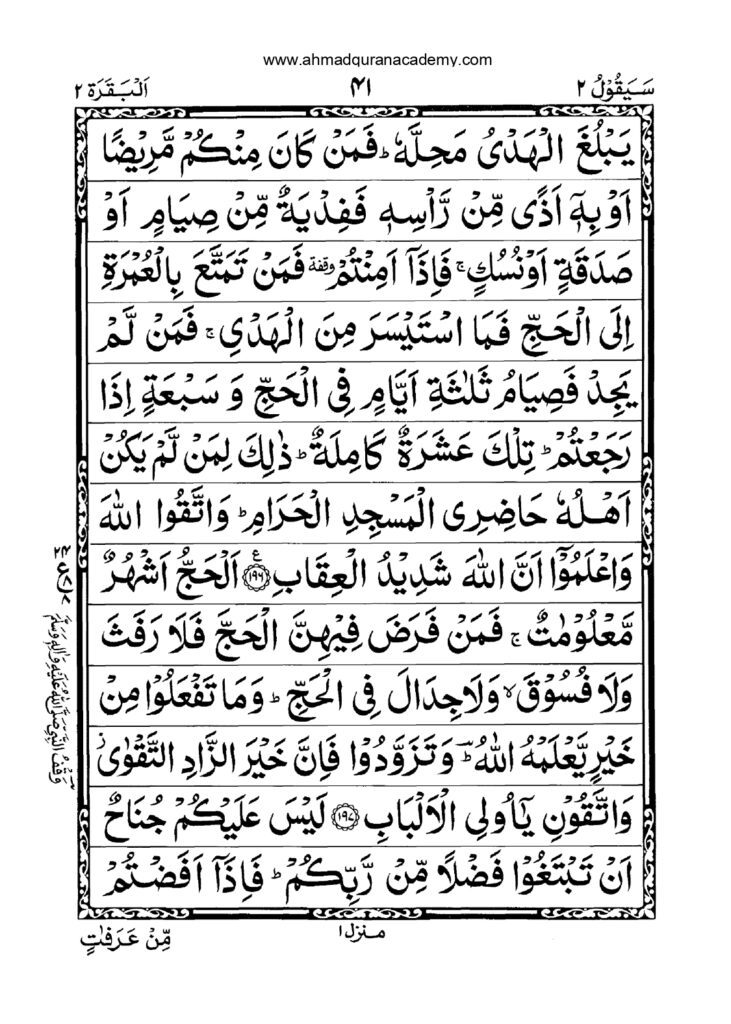 www.ahmadquranacademy.com
سَيَقُوْلُ ٢
٤١
اَلْبَقَرَة ٢
يَبْلُغَ الْهَدْىُ مَحِلَّهٗ ؕ فَمَنْ كَانَ مِنْكُمْ مَّرِيْضًا
اَوْ بِهٖۤ اَذًى مِّنْ رَّاْسِهٖ فَفِدْيَةٌ مِّنْ صِيَامٍ اَوْ
صَدَقَةٍ اَوْ نُسُكٍ ۚ فَاِذَاۤ اَمِنْتُمْ وقفة فَمَنْ تَمَتَّعَ بِالْعُمْرَةِ
اِلَى الْحَجِّ فَمَا اسْتَيْسَرَ مِنَ الْهَدْىِ ۚ فَمَنْ لَّمْ
يَجِدْ فَصِيَامُ ثَلٰثَةِ اَيَّامٍ فِى الْحَجِّ وَ سَبْعَةٍ اِذَا
رَجَعْتُمْ ؕ تِلْكَ عَشَرَةٌ كَامِلَةٌ ؕ ذٰلِكَ لِمَنْ لَّمْ يَكُنْ
اَهْلُهٗ حَاضِرِى الْمَسْجِدِ الْحَرَامِ ؕ وَاتَّقُوا اللهَ
وَاعْلَمُوْۤا اَنَّ اللهَ شَدِيْدُ الْعِقَابِ ع ١٩٦ اَلْحَجُّ اَشْهُرٌ
مَّعْلُوْمٰتٌ ۚ فَمَنْ فَرَضَ فِيْهِنَّ الْحَجَّ فَلَا رَفَثَ
وَلَا فُسُوْقَ ۙ وَلَا جِدَالَ فِى الْحَجِّ ؕ وَمَا تَفْعَلُوْا مِنْ
خَيْرٍ يَّعْلَمْهُ اللهُ ؕ وَتَزَوَّدُوْا فَاِنَّ خَيْرَ الزَّادِ التَّقْوٰى ز
وَاتَّقُوْنِ يٰۤاُولِى الْاَلْبَابِ ١٩٧ لَيْسَ عَلَيْكُمْ جُنَاحٌ
اَنْ تَبْتَغُوْا فَضْلًا مِّنْ رَّبِّكُمْ ؕ فَاِذَاۤ اَفَضْتُمْ
٢٤
ع
٨
وَقْفُ النَّبِىِّ صَلَّى اللهُ عَلَيْهِ وَاٰلِهٖ وَسَلَّمَ
منزل ١
مِّنْ عَرَفٰتٍ